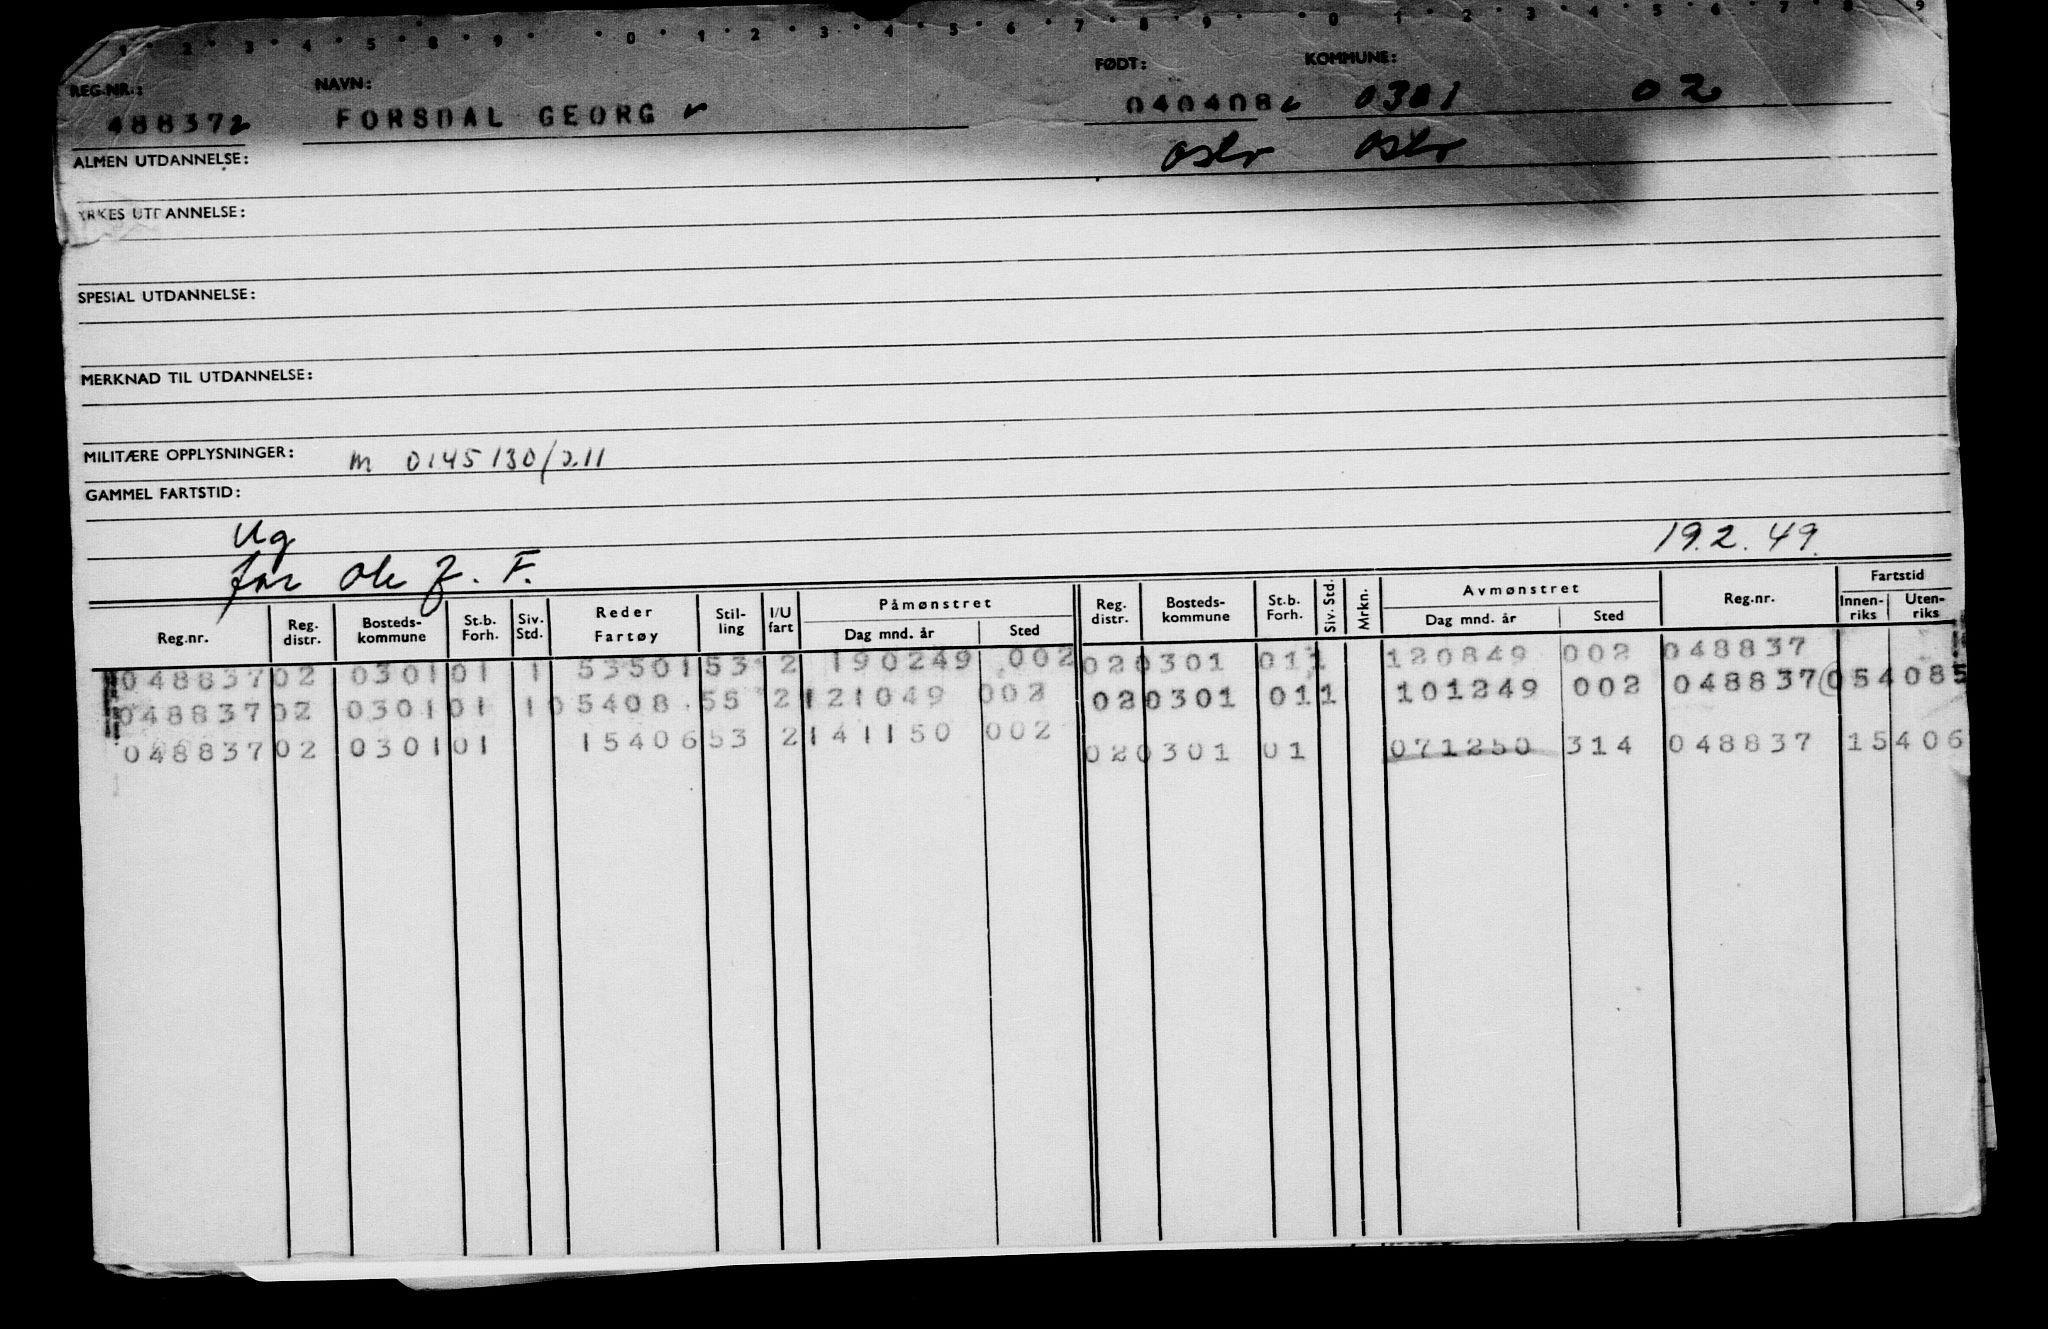 1 2 3 4 5 6 7 8 9 0 1 2 3 4 5 6 7 8 9 0 1 2 3 4 5 6 7 8 9
REG.NR.: NAVN: FØDT: KOMMUNE:
48837 FORSDAL GEORG 040408 0301 02
Oslo Oslo
ALMEN UTDANNELSE:
YRKES UTDANNELSE:
SPESIAL UTDANNELSE:
MERKNAD TIL UTDANNELSE:
MILITÆRE OPPLYSNINGER: m 0145130/2.11
GAMMEL FARTSTID:
Ug 19.2.49.
far Ole F.
Reg.nr. Reg. distr. Bosteds-kommune St.b. Forh. Siv. Std. Reder Fartøy Stil-ling I/U fart Påmønstret Dag mnd. år Sted Reg. distr. Bosteds-kommune St.b. Forh. Siv. Std. Mrkn. Avmønstret Dag mnd. år Sted Reg.nr. Fartstid Innen-riks Uten-riks
048837 02 0301 01 1 53501 53 2 190249 002 02 0301 01 1 120849 002 048837
048837 02 0301 01 1 05408 55 2 121049 002 02 0301 01 1 101249 002 048837 054085
048837 02 0301 01 15406 53 2 141150 002 02 0301 01 071250 314 048837 15406